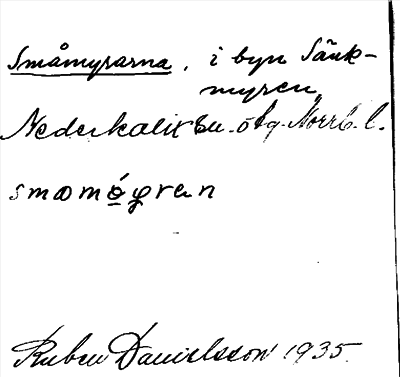 Småmyrarna, i byn Sänk-
myren,
Nederkalix sn. ög. Norrb. l.
smamógran
Ruben Danielsson 1935.